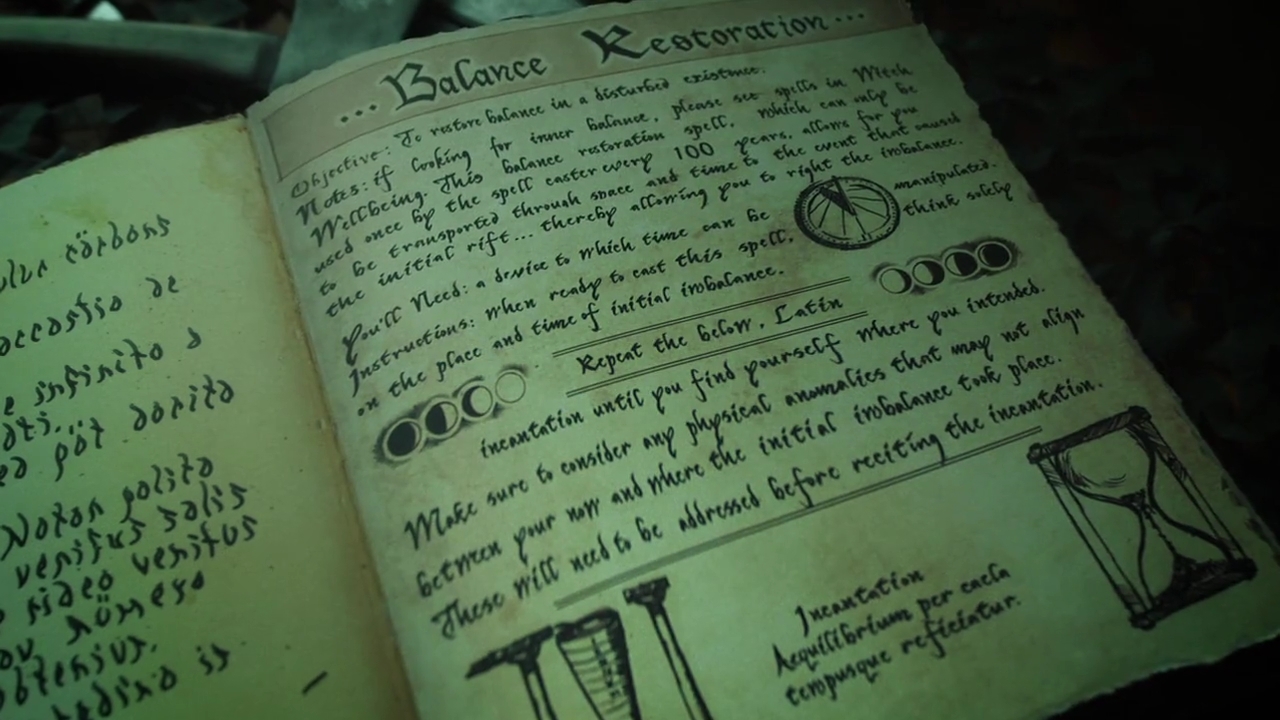 accostio de
e infinito d
Notan polito
venitus salis
o rideo venitus
...Balance Restoration...
Objective: To restore balance in a disturbed existence.
Notes: if looking for inner balance, please see spells in Witch
Wellbeing. This balance restoration spell, which can only be
used once by the spell caster every 100 years, allows for you
to be transported through space and time to the event that caused
the initial rift... thereby allowing you to right the imbalance.
You'll Need: a device to which time can be manipulated.
Instructions: when ready to cast this spell, think solely
on the place and time of initial imbalance.
Repeat the below, Latin
incantation until you find yourself where you intended.
Make sure to consider any physical anomalies that may not align
between your now and where the initial imbalance took place.
These will need to be addressed before reciting the incantation.
Incantation
Aequilibrium per caela
tempusque reficiatur.